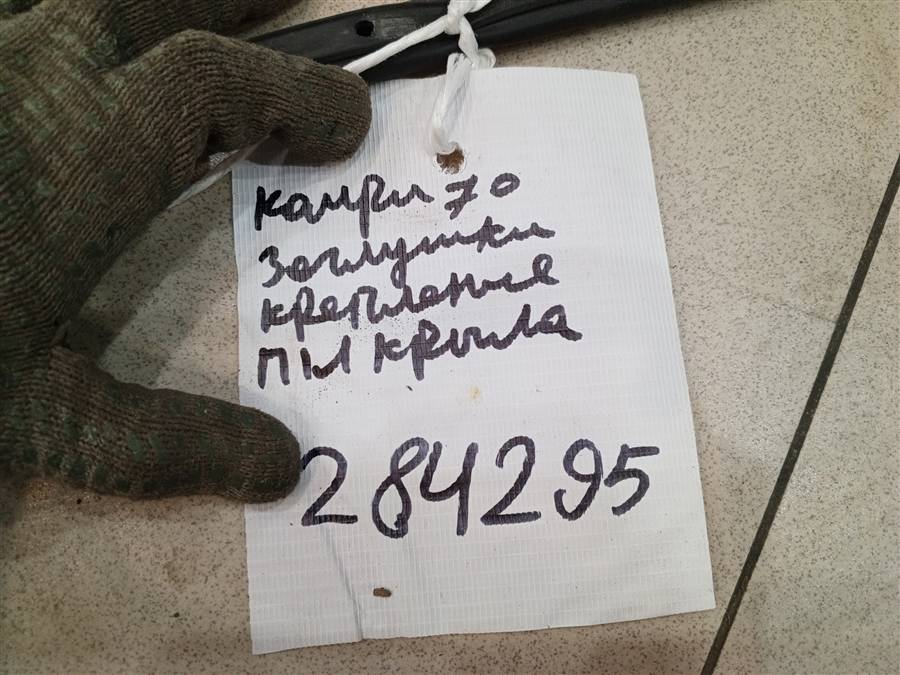 камри 70
Заглушки
крепления
ПЛ крыла
284295